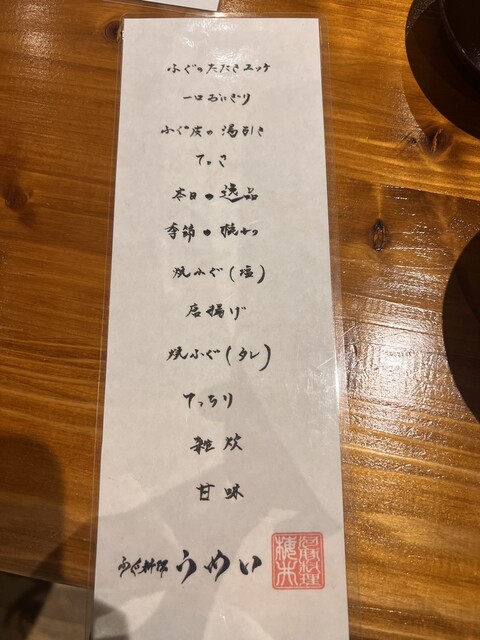 ふぐのたたきユッケ
一口おにぎり
ふぐ皮の湯引き
てっさ
本日の逸品
季節の
焼ふぐ(塩)
唐揚げ
焼ふぐ(タレ)
てっちり
雑炊
甘味
ふぐ料理 うめい
河豚料理